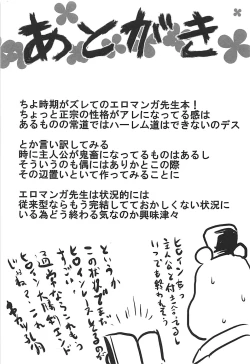 あとがき
ちよ時期がズレてのエロマンガ先生本！
ちょっと正宗の性格がアレになってる感は
あるものの常道ではハーレム道はできないのデス
とか言い訳してみる
時に主人公が鬼畜になってるものはあるし
そういうのも偶にはありかとこの際
その辺置いといて作ってみることに
エロマンガ先生は状況的には
従来型ならもう完結しててもおかしくない状況に
いる為どう終わる気なのか興味津々
ヒロインたちっ
主人公と付き合ってるし
いつでも終われそう
というか
この状況で